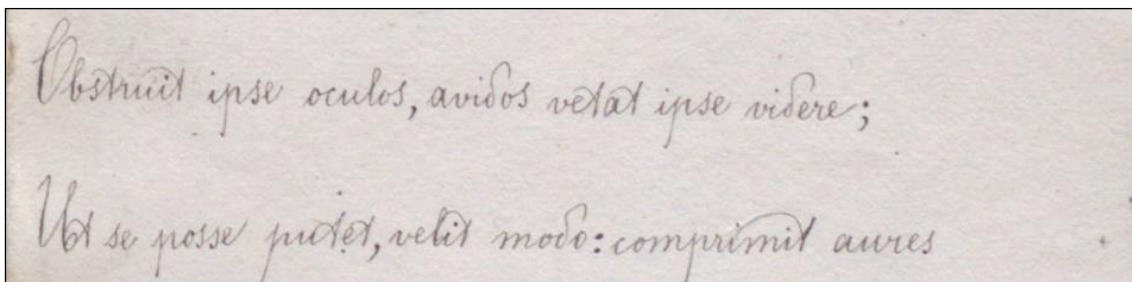 Obstruit ipse oculos, avidos vetat ipse videre;
Ut se posse putet, velit modo: comprimit aures